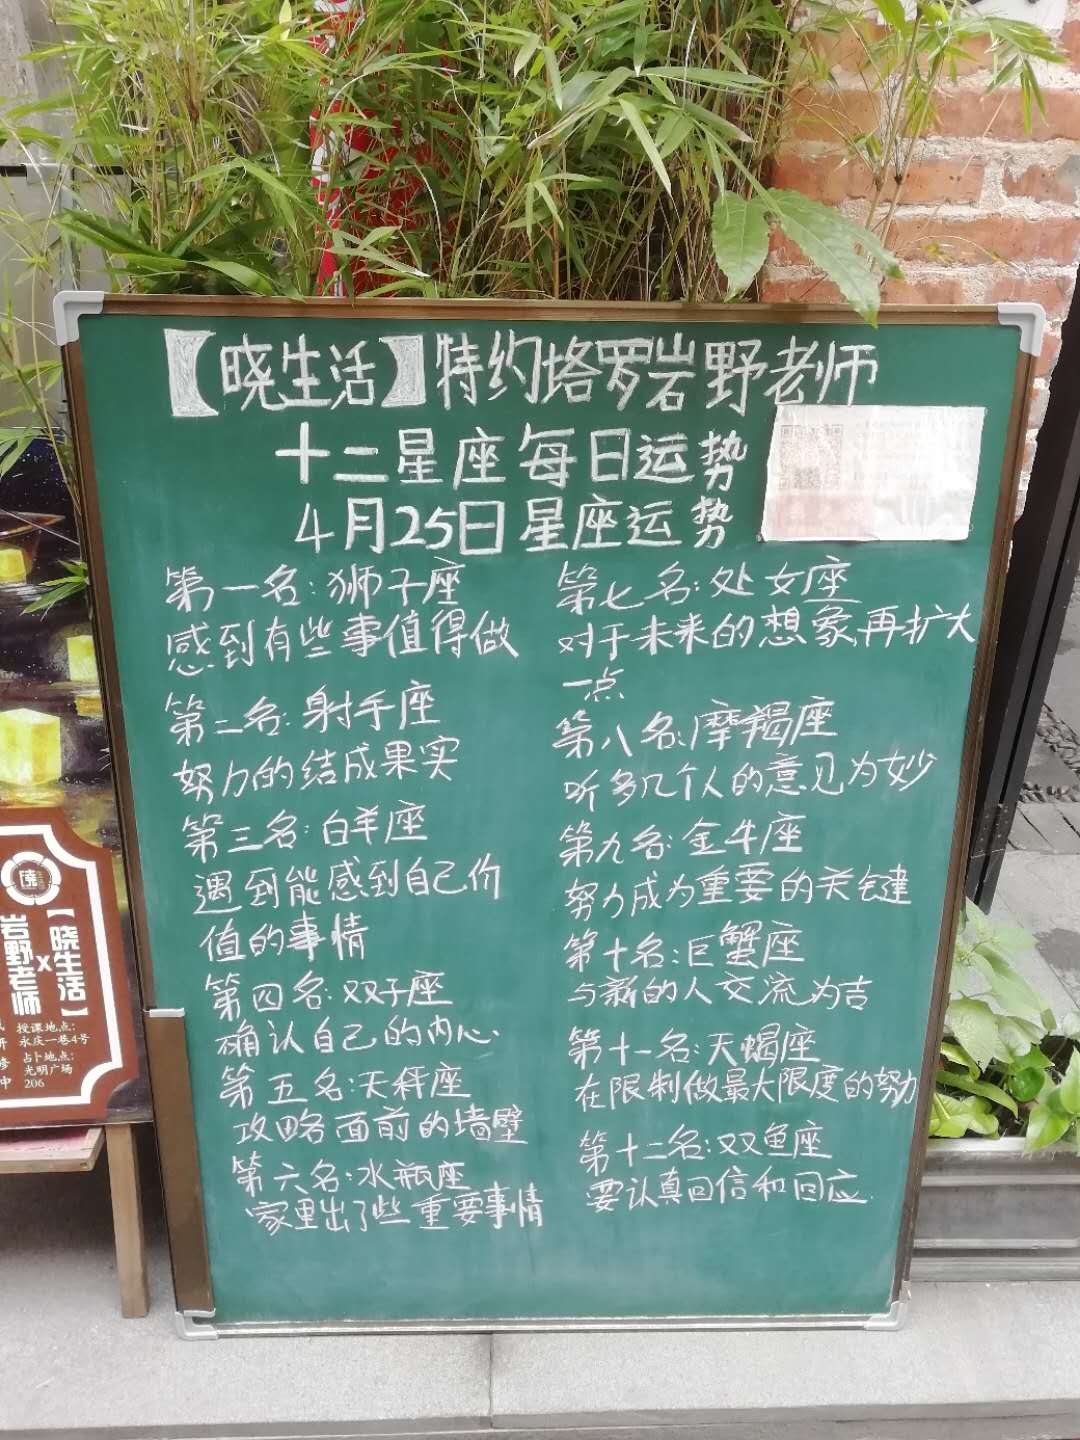 【晓生活】特约塔罗岩野老师
十二星座每日运势
4月25日星座运势
第一名:狮子座
感到有些事值得做
第二名:射手座
努力的结成果实
第三名:白羊座
遇到能感到自己价
值的事情
第四名:双子座
确认自己的内心
第五名:天秤座
攻略面前的墙壁
第六名:水瓶座
家里出了些重要事情
第七名:处女座
对于未来的想象再扩大
一点
第八名:摩羯座
听多几个人的意见为妙
第九名:金牛座
努力成为重要的关键
第十名:巨蟹座
与新的人交流为吉
第十一名:天蝎座
在限制做最大限度的努力
第十二名:双鱼座
要认真回信和回应
【晓生活】
x
岩野老师
授课地点:
永庆一巷4号
占卜地点:
光明广场
206
研
修
中